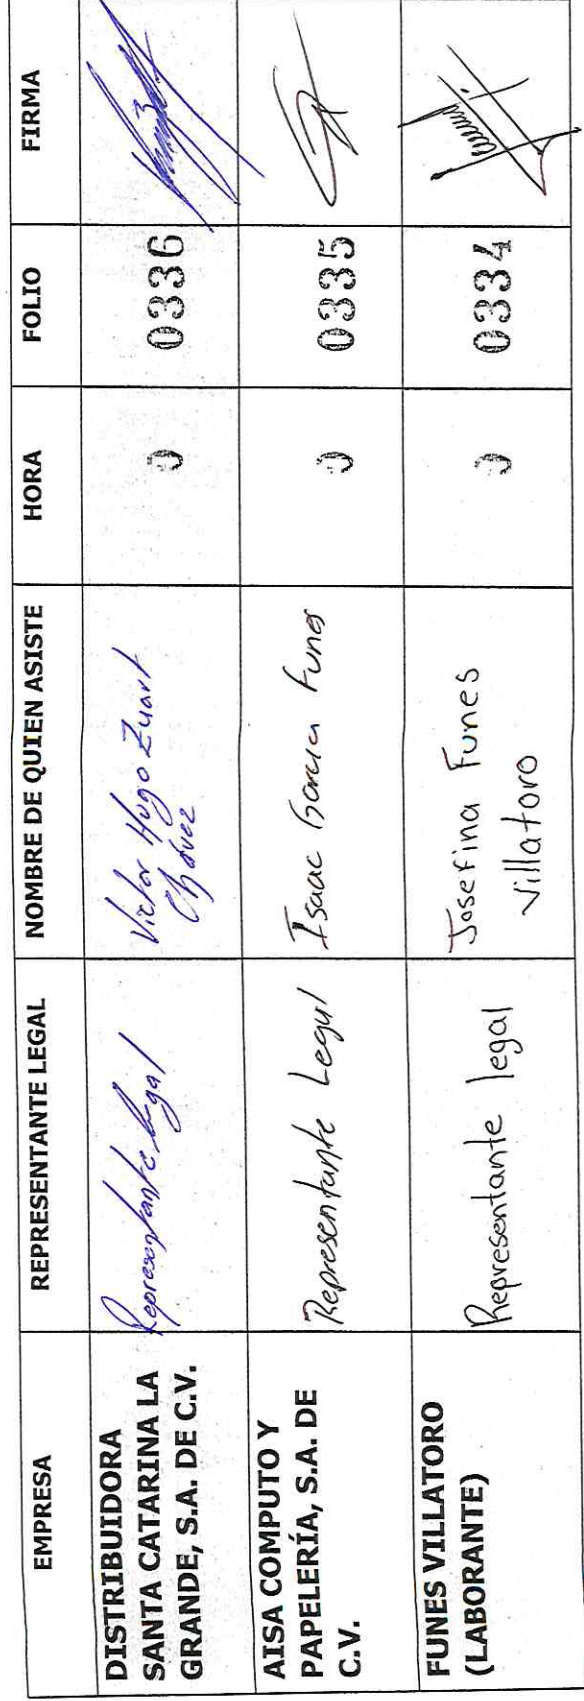 EMPRESA REPRESENTANTE LEGAL NOMBRE DE QUIEN ASISTE HORA FOLIO FIRMA
DISTRIBUIDORA
SANTA CATARINA LA
GRANDE, S.A. DE C.V.
Representante legal
Victor Hugo Zuart
Chávez
0336
AISA COMPUTO Y
PAPELERÍA, S.A. DE
C.V.
Representante Legal
Isaac Garcia Funes
0335
FUNES VILLATORO
(LABORANTE)
Representante legal
Josefina Funes
Villatoro
0334